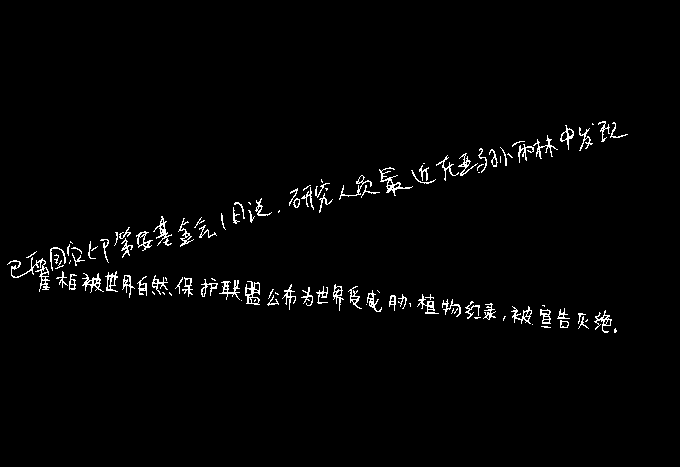 巴西国印第安基金会1日说,研究人员最近在亚马孙雨林中发现
崖柏被世界自然保护联盟公布为世界受威胁植物红录,被宣告灭绝。